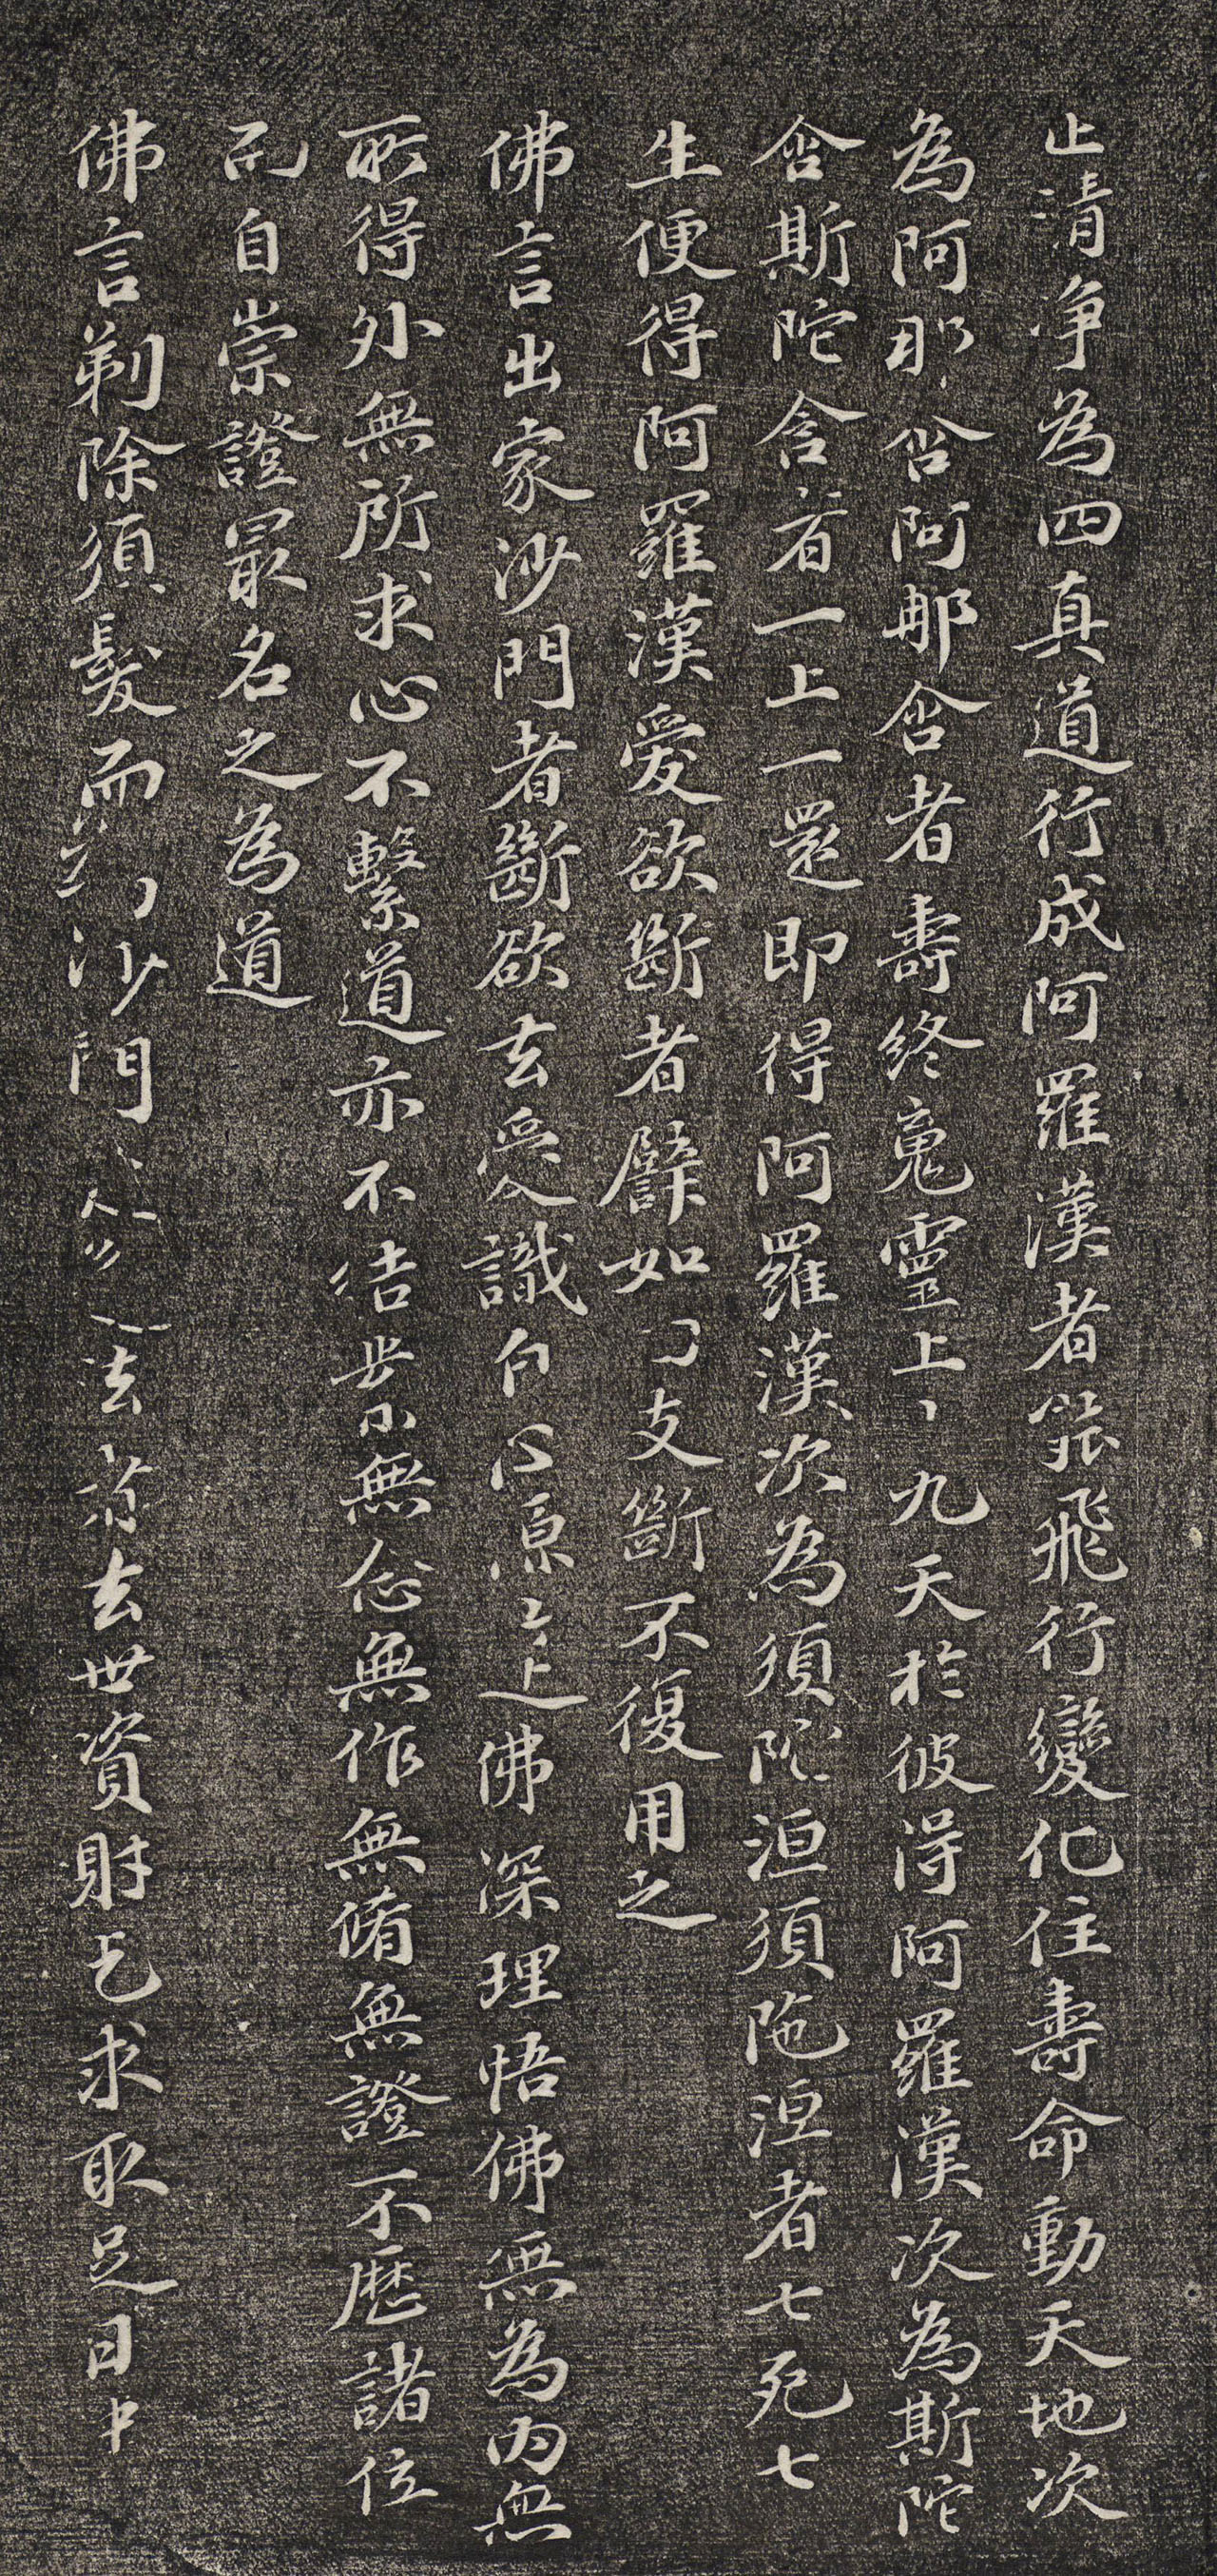 止清净為四真道行成阿羅漢者能飛行變化住壽命動天地次
為阿那含阿那含者壽終魂靈上丶九天於彼得阿羅漢次為斯陀
含斯陀含者一上一還即得阿羅漢次為須陀洹須陁洹者七死七
生便得阿羅漢愛欲斷者譬如支斷不復用之
佛言出家沙門者斷欲去愛識自心源達佛深理悟佛無為內無
所得外無所求心不繫道亦不結業無念無作無脩無證不歷諸位
而自崇證最名之為道
佛言剃除須髮而為沙門受道法者去世資財乞求取足日中